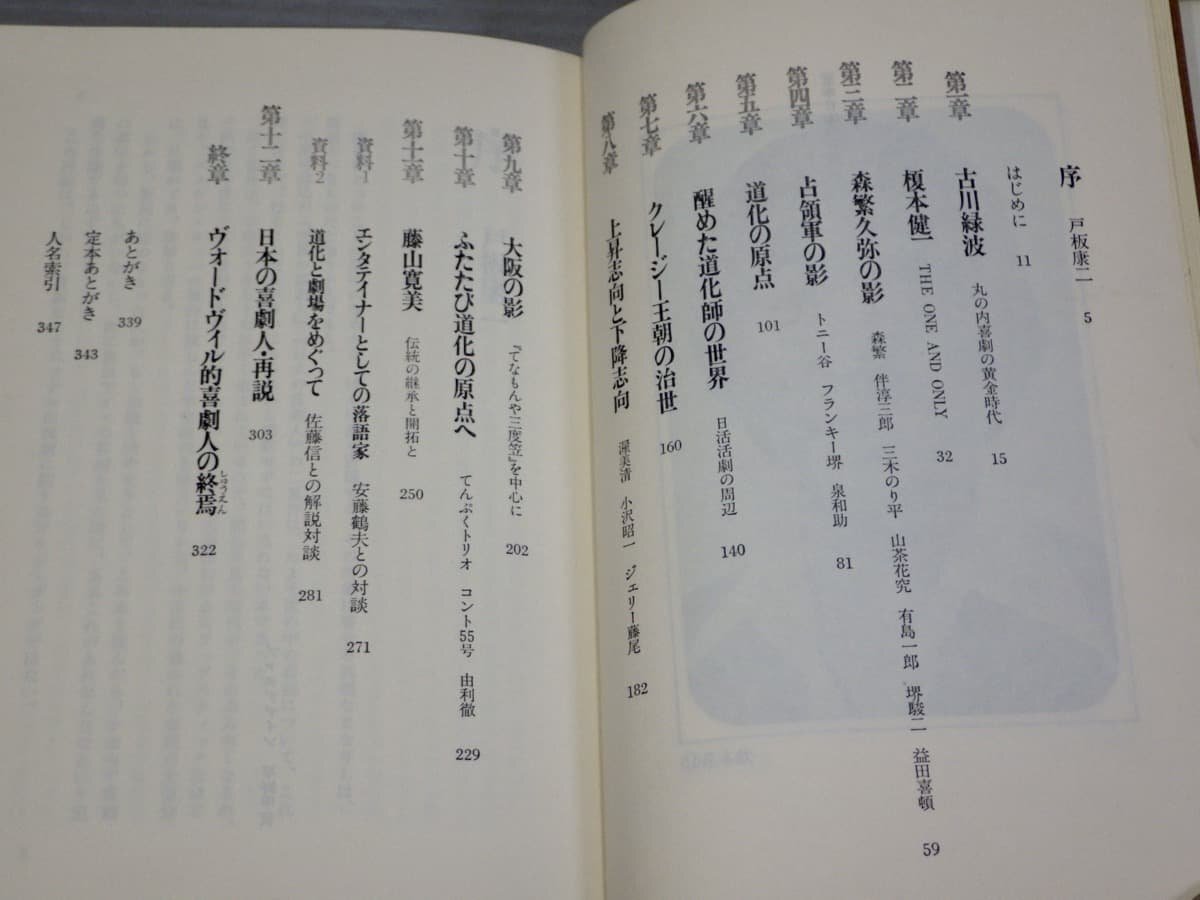 序 戸板康二 5
はじめに 11
第一章 古川緑波 丸の内喜劇の黄金時代 15
第二章 榎本健一 THE ONE AND ONLY 32
第三章 森繁久弥の影 森繁 伴淳三郎 三木のり平 山茶花究 有島一郎 堺駿二 益田喜頓 59
第四章 占領軍の影 トニー谷 フランキー堺 泉和助 81
第五章 道化の原点 101
第六章 醒めた道化師の世界 日活活劇の周辺 140
第七章 クレージー王朝の治世 160
第八章 上昇志向と下降志向 渥美清 小沢昭一 ジェリー藤尾 182
第九章 大阪の影 『てなもんや三度笠』を中心に 202
第十章 ふたたび道化の原点へ てんぷくトリオ コント55号 由利徹 229
第十一章 藤山寛美 伝統の継承と開拓と 250
資料1 エンタテイナーとしての落語家 安藤鶴夫との対談 271
資料2 道化と劇場をめぐって 佐藤信との解説対談 281
第十二章 日本の喜劇人・再説 303
終章 ヴォードヴィル的喜劇人の終焉 しゅうえん 322
あとがき 339
定本あとがき 343
人名索引 347